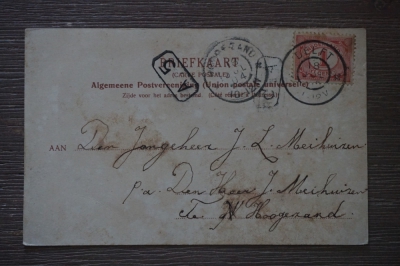 BRIEFKAART
(CARTE POSTALE)
Algemeene Postvereeniging (Union postale universelle)
Zijde voor het adres bestemd. (Côté réservé à l'adresse)
AAN Den Jongeheer J. L. Meihuizen
p/a Den Heer J. Meihuizen
te W. Hoogezand
DELFT